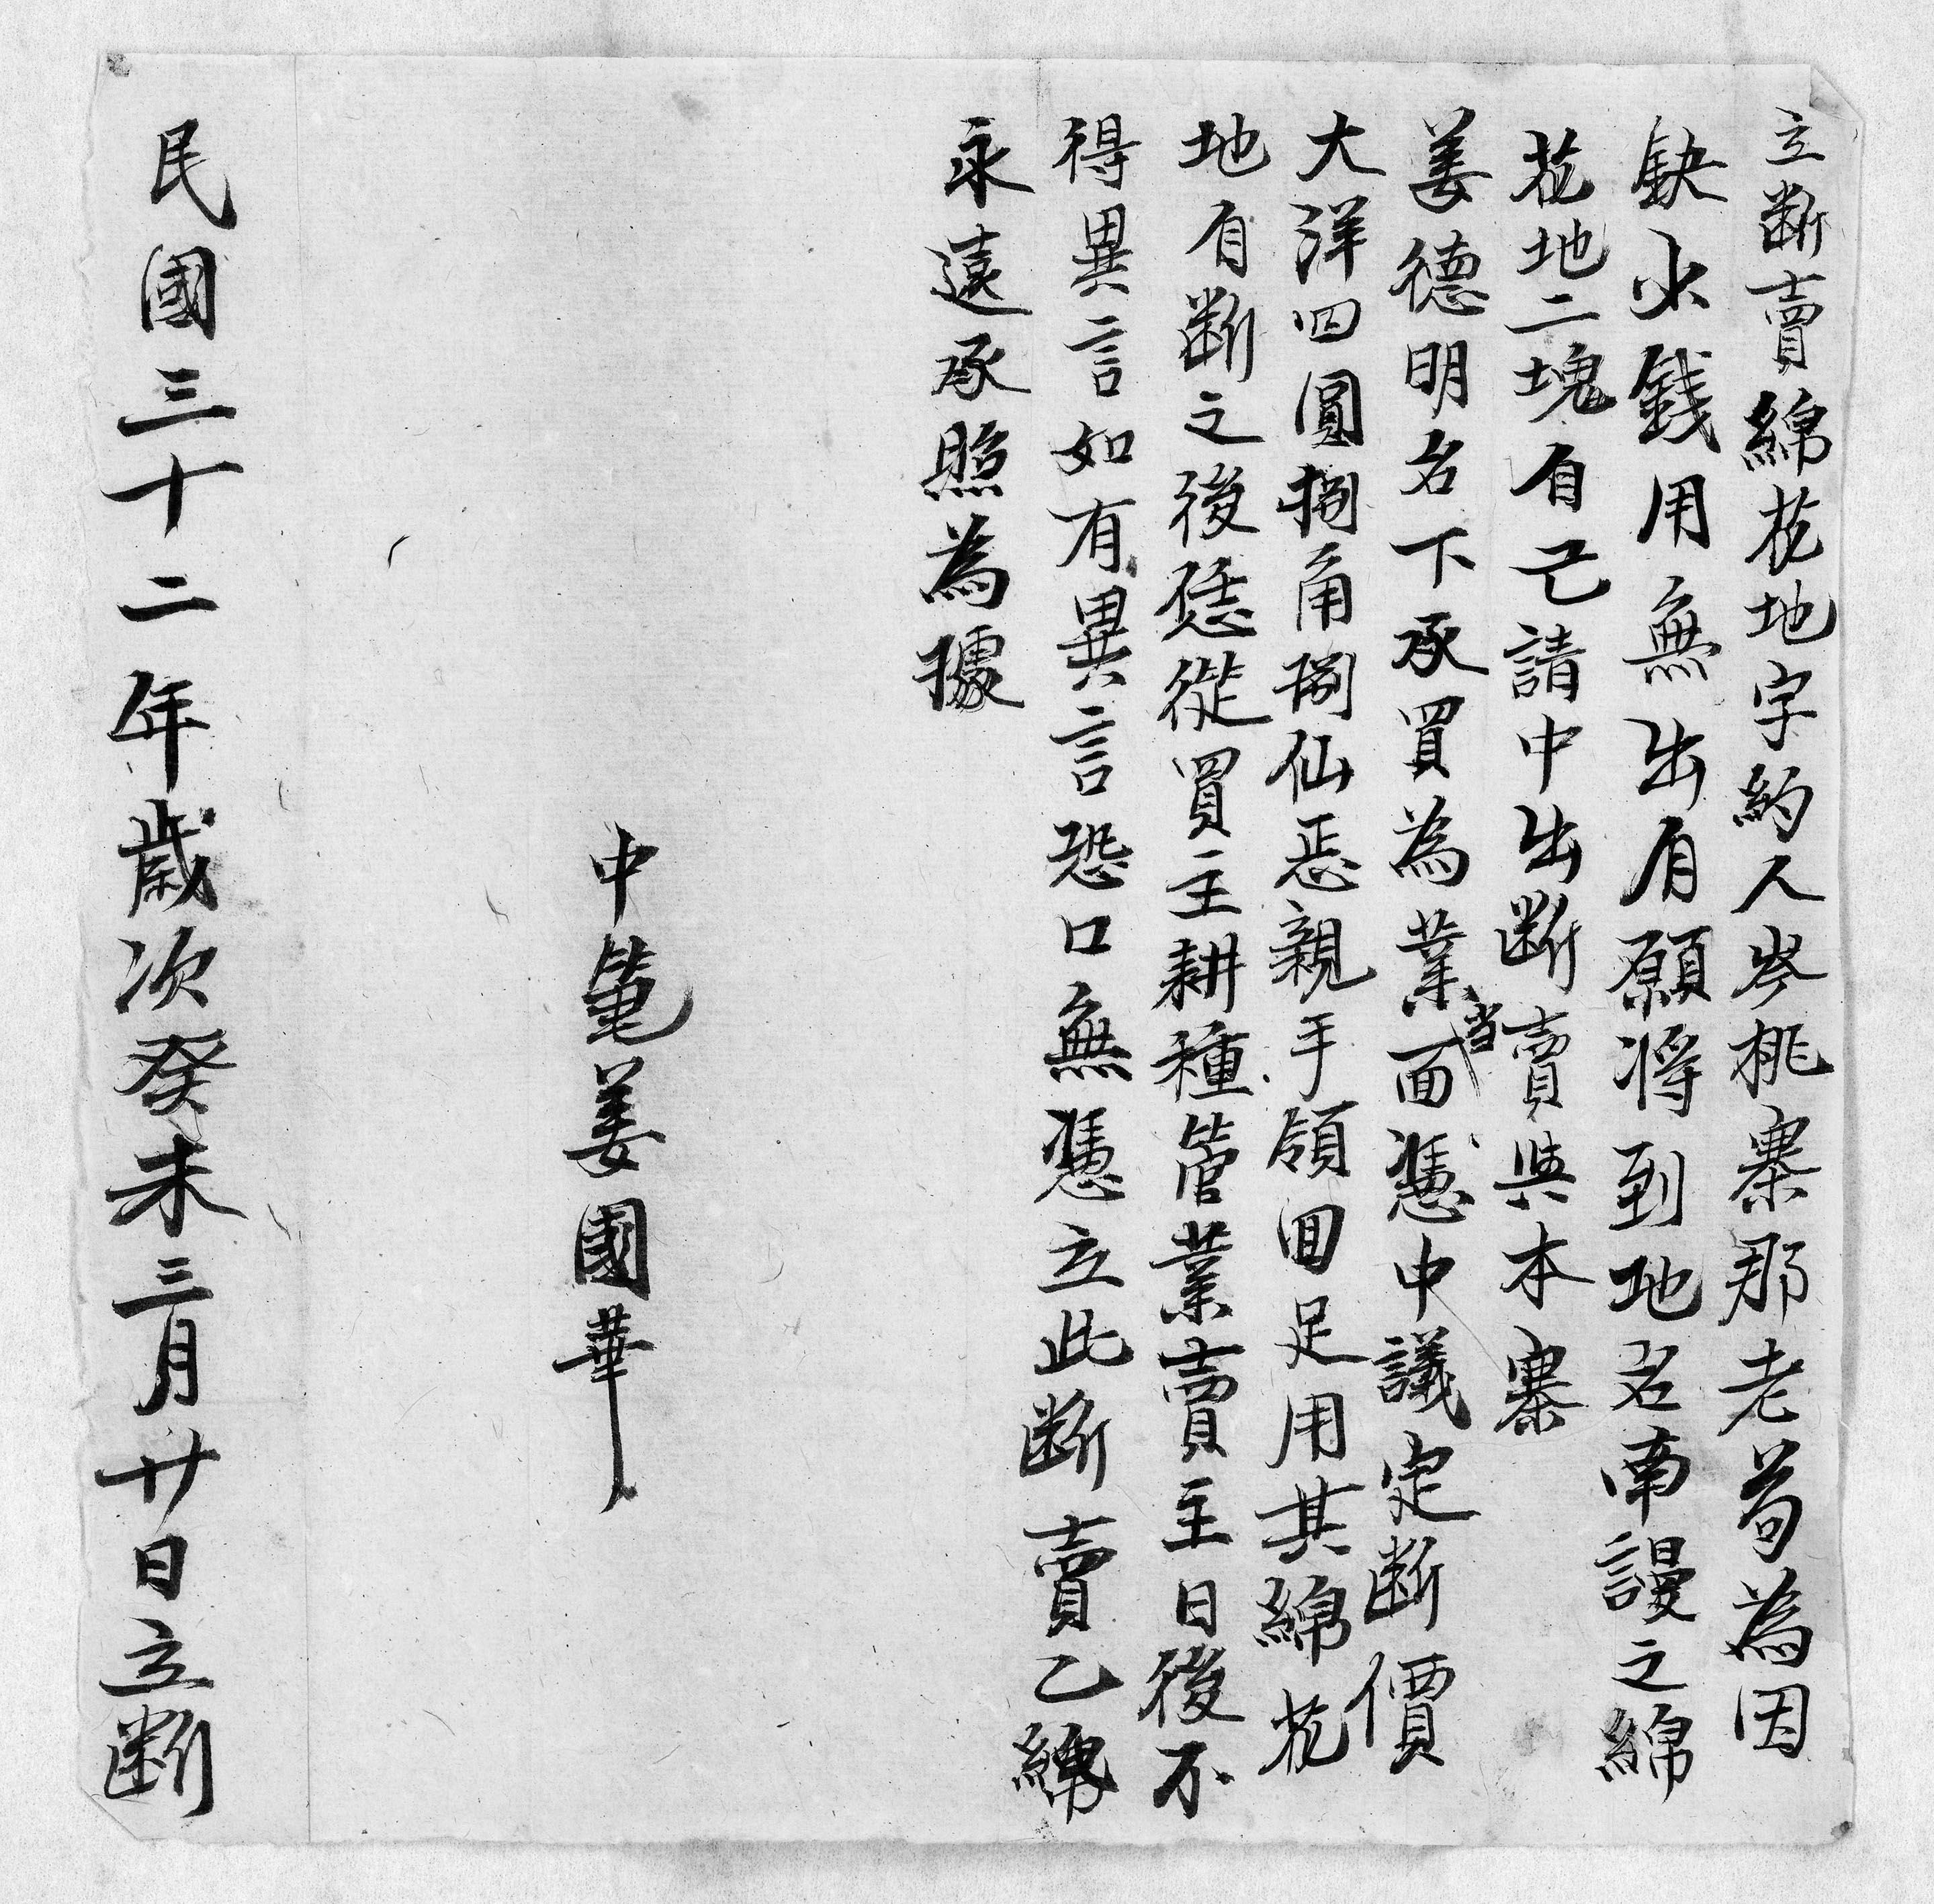 立斷賣綿花地字約人岑桃寨那老苟為因
缺少錢用無出自願將到地名南謾之綿
花地二塊自己請中出斷賣與本寨
姜德明名下承買為業當面憑中議定斷價
大洋四圓捌角捌仙恁親手領回足用其綿花
地自斷之後恁從買主耕種管業賣主日後不
得異言如有異言恐口無憑立此斷賣乙綿
永遠承照為據
中筆姜國華
民國三十二年歲次癸未三月廿日立斷